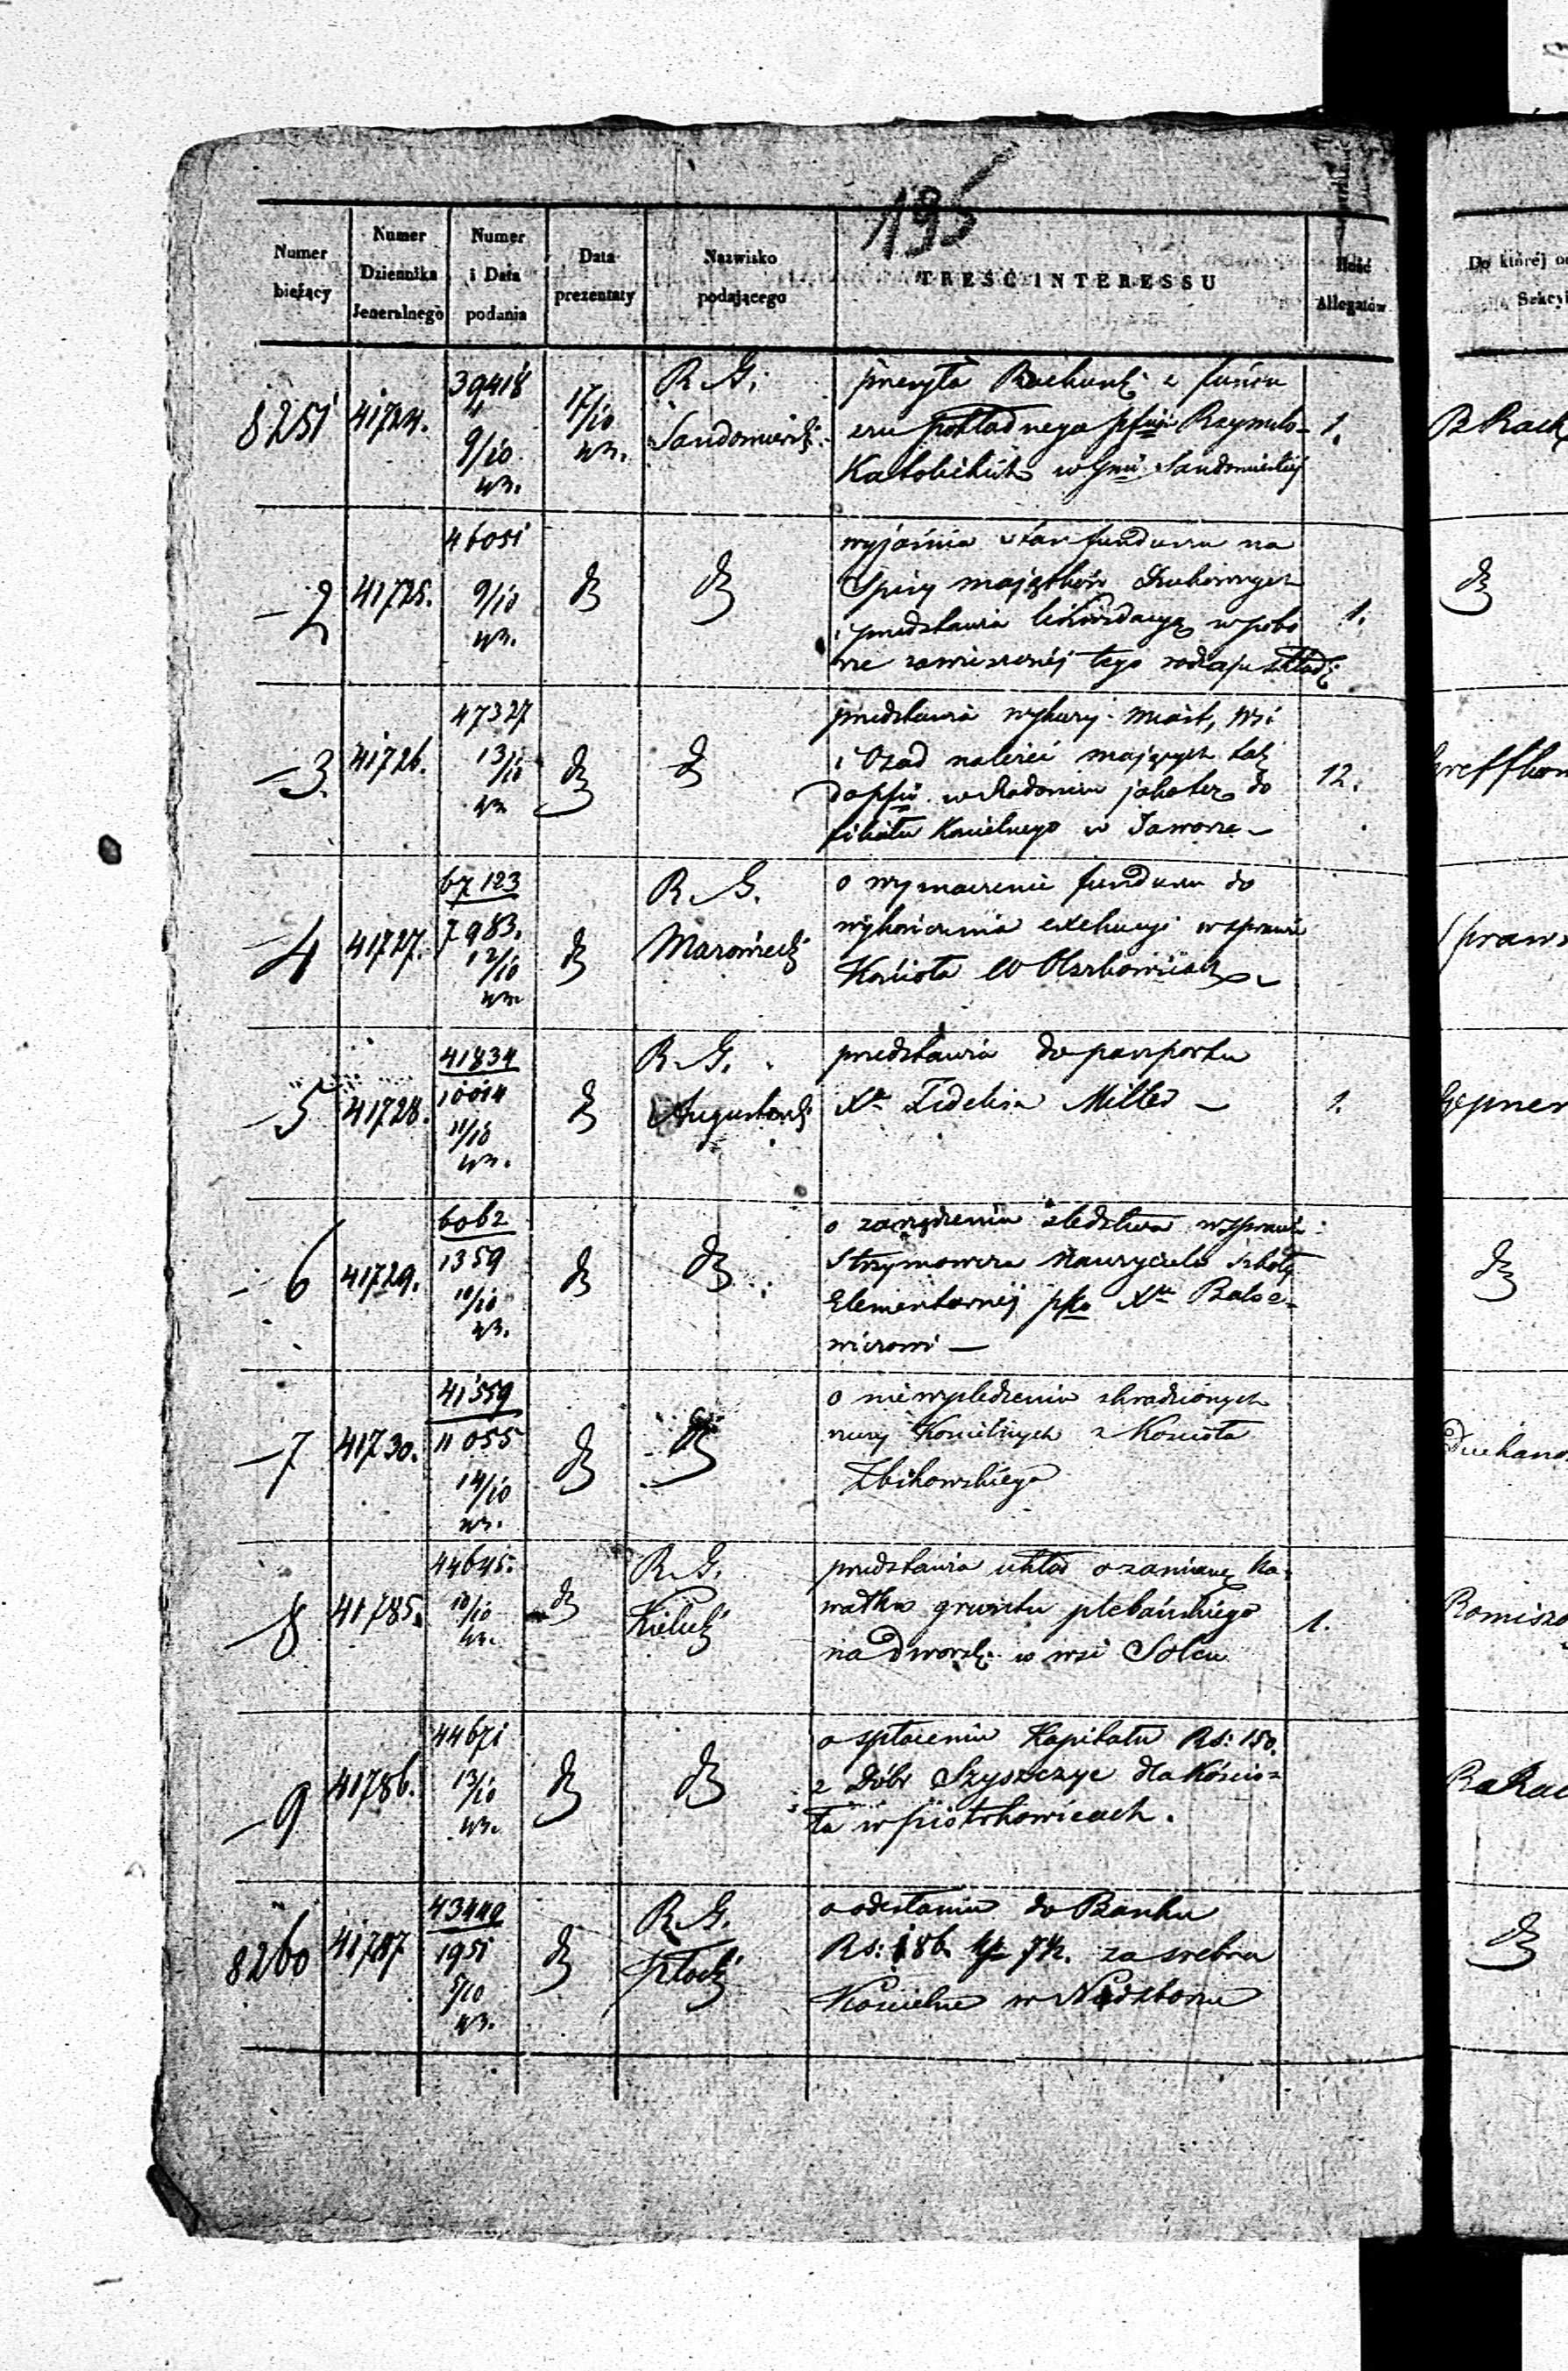 195
Numer bieżący
Numer Dziennika Jeneralnego
Numer i Data podania
Data prezentaty
Nazwisko podającego
TREŚĆ INTERESSU
Ilość Allegatów
Do któréj
Sekcyi
8251 41724. 39418 9/10 17/10 R. G. Sandomierski
przesyła Rachunki z fundu
szu pokładnego Rzymsko-
Katolickich w Gnii Sandomierskiej
1.
2 41725. 46051 9/10 do do
wyjaśnia stan funduszu na
Spisy majątków Duchownych
i przedstawia likwidacyą w pobo
rze zawieszonéj tego rodzaju składki
1. do
3. 41726. 47327 13/10 do do
przedstawia wykazy miast, wsi
i Osad należeć mających tak
do w Radomiu jakoteż do
filiału Kościelnego w Jaworze
12.
4 41727. 67123 7983. 12/10 do R. G. Mazowiecki
o wyznaczenie funduszu do
wykończenia exekucyi w sprawie
Kościoła w
5 41728. 41834 10014 11/10 do R. G. Augustowski
przedstawia do paszportu
Xa Fidelisa Miller
1.
6 41729. 6062 1359 10/10 do do
o zarządzenie śledztwa w sprawie
Strzymowicza Nauczyciela szkoły
Elementarnéj pko Xu
wiczowi
do
7 41730. 41559 11055 14/10 do do
o niewyśledzeniu skradzionych
rzeczy Kościelnych z Kościoła
Zbikowskiego
8 41785. 44645. 10/10 do R. G. Kielecki
przedstawia układ o zamianę ka-
wałka gruntu plebańskiego
na Dworski w wsi Solcu
1.
9 41786. 44671 13/10 do do
o spłaceniu Kapitału Rs: 150.
z Dóbr Szyszczyc dla Kościo-
ła w Piotrkowicach.
8260 41787 43440 1951 5/10 do R. G. Płocki
o odesłaniu do Banku
Rs: 186 kp 7½. za srebra
Kościelne w
do